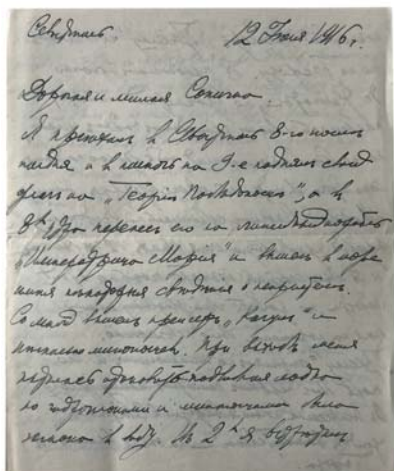 Севастополь. 12 Июля 1916 г.
Дорогая и милая Сонечка
Я приехал в Севастополь 8-го после
полдня а в полночь на 9-е поднял свой
флаг на „Георгии Победоносце", а в
8 ч утра перенес его на линейный корабль
„Императрица Мария" и вышел в море
о неприятеле.
Со мной вышел крейсер „Кагул" и
миноносцев. При выходе меня
подводная лодка
но гидропланами и миноносцами была
загнана в воду. В 2 ч я